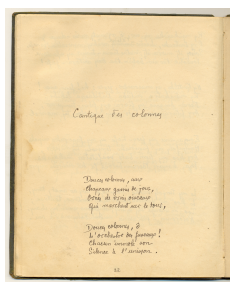 Cantique des colonnes
Douces colonnes, aux
Chapeaux garnis de jour,
Ornés de vrais oiseaux
Qui marchent sur le tour,
Douces colonnes, ô
L'orchestre de fuseaux !
Chacun immole son
Silence à l'unisson.